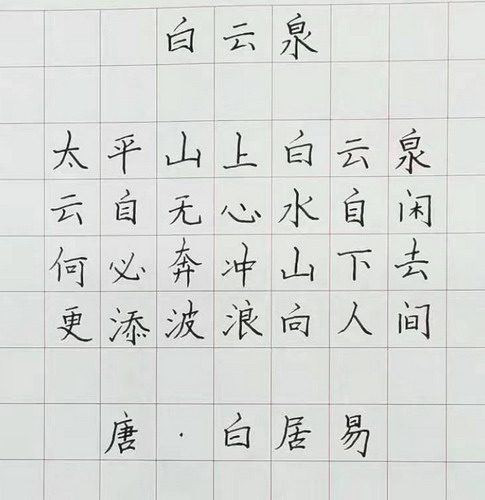 白云泉
太平山上白云泉
云自无心水自闲
何必奔冲山下去
更添波浪向人间
唐·白居易